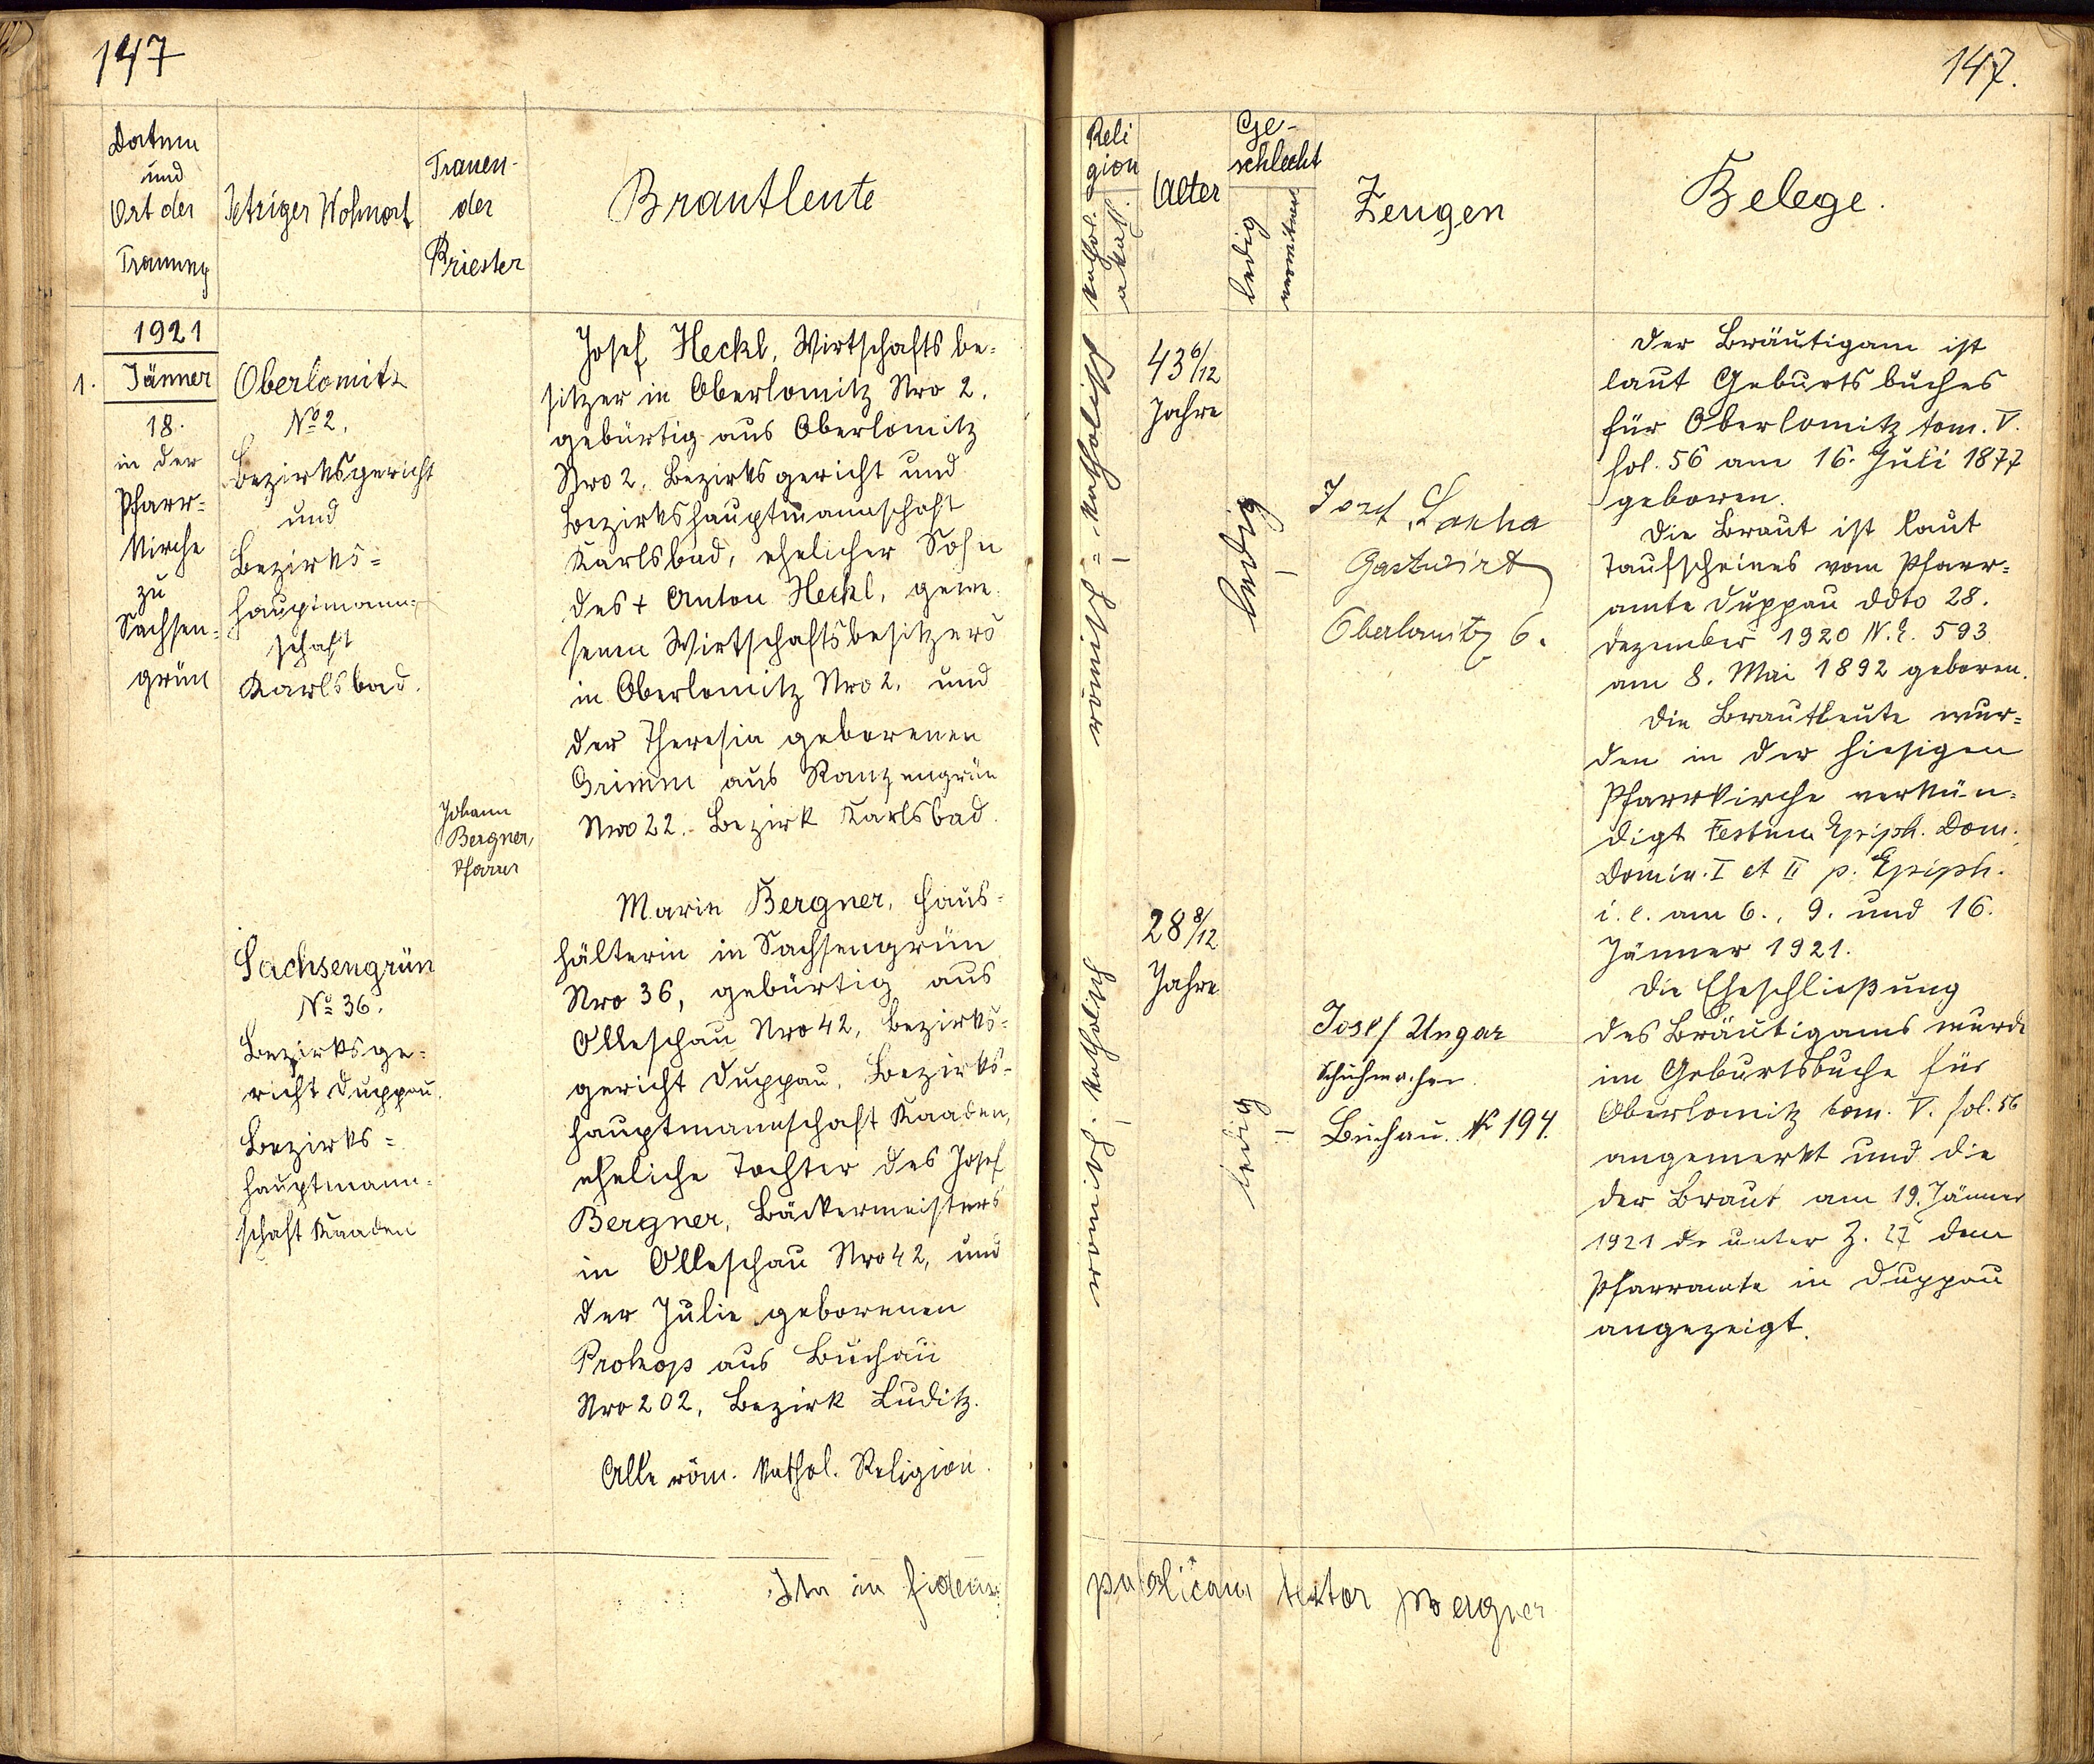 147
Datum
und
Ort der
Trauung
Jetziger Wohnort
Trauen-
der
Priester
Brautleute
1921
1.
Jänner
18.
in der
Pfarr=
kirche
zu
Sachsen=
grün
Oberlomitz
No 2.
Bezirksgericht
und
Bezirks=
hauptmann=
schaft
Karlsbad.
Sachsengrün
No 36.
Bezirksge=
richt Duppau.
Bezirks=
hauptmann=
schaft Kaaden
Johann
Bergner,
Pfarrer
Josef Heckl, Wirtschaftsbe=
sitzer in Oberlomitz Nro 2.
gebürtig aus Oberlomitz
Nro 2. Bezirksgericht und
Bezirkshauptmannschaft
Karlsbad, ehelicher Sohn
des + Anton Heckl, gewe=
senen Wirtschaftsbesitzers
in Oberlomitz Nro 2. und
der Theresia geborenen
Grimm aus Ranzengrün
Nro 22. Bezirk Karlsbad.
Marie Bergner, Haus=
hälterin in Sachsengrün
Nro 36, gebürtig aus
Olleschau Nro 42, Bezirks=
gericht Duppau, Bezirks=
hauptmannschaft Kaaden,
eheliche Tochter des Josef
Bergner, Bäckermeisters
in Olleschau Nro 42, und
der Julie geborenen
Prokop aus Buchau
Nro 202, Bezirk Luditz.
Alle röm. kathol. Religion.
Ita in fidem
147.
Reli
gion
kathol.
akath.
Alter
Ge-
schlecht
ledig
verwitwet
Zeugen
Belege.
römisch = katholisch
43 6/12
Jahre
ledig
Josef
Gastwirt
Oberlomitz 6.
römisch = katholisch
28 8/12
Jahre
ledig
Josef Ungar
Schuhmacher
Buchau N 194.
Der Bräutigam ist
laut Geburtsbuches
für Oberlomitz tom. V.
fol. 56 am 16. Juli 1877
geboren.
Die Braut ist laut
Taufscheines vom Pfarr=
amte Duppau ddto 28.
Dezember 1920 N.E. 593
am 8. Mai 1892 geboren.
Die Brautleute wur=
den in der hiesigen
Pfarrkirche verkün=
digt Festum Epiph. Dom.
Domin. I et II p. Epiph.
i.e. am 6., 9. und 16.
Jänner 1921.
Die Eheschließung
des Bräutigams wurde
im Geburtsbuche für
Oberlomitz tom. V. fol. 56
angemerkt und die
der Braut am 19. Jänner
1921 unter Z. 27 dem
Pfarramte in Duppau
angezeigt.
publicam testor Bergner